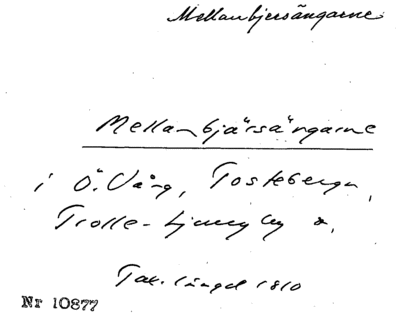 Mellanbjersängarne
Mellanbjärsängarne
i Ö. Vång, Tosteberga,
Trolle-Ljungby
Tax. längd 1810
Nr 10877